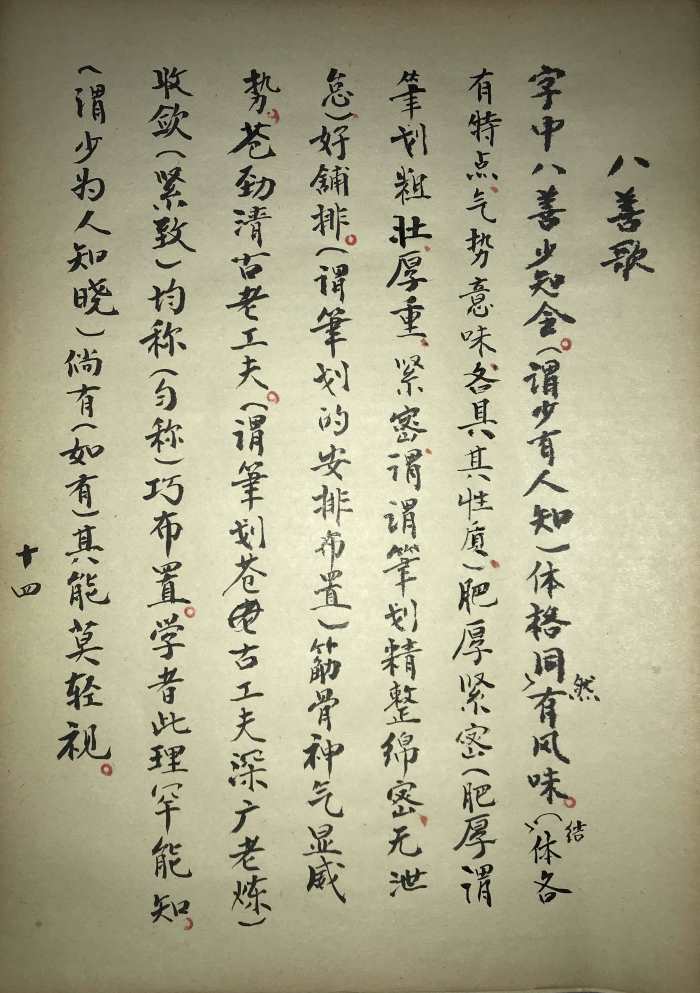 八善歌
字中八善少知全。(谓少有人知)体格同然有风味。(结体各
有特点、气势意味各具其性质、)肥厚紧密(肥厚谓
筆划粗壮、厚重、紧密谓谓筆划精整绵密、无泄
怠)好铺排。(谓筆划的安排布置)筋骨神气显威
势。苍劲清古老工夫。(谓筆划苍古工夫深广老炼)
收敛(紧致)均称(匀称)巧布置。学者此理罕能知、
(谓少为人知晓)倘有(如有)其能莫轻视。
十四